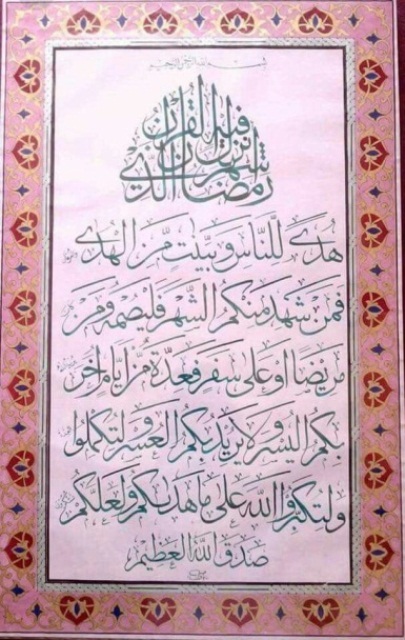 بسم الله الرحمن الرحيم
شهر رمضان الذي انزل فيه القرآن
هُدًى لِلنَّاسِ وَبَيِّنَتٍ مِّنَ الهُدى
فَمَنْ شَهِدَ مِنْكُمُ الشَّهْرَ فَلْيَصُمْهُ وَمَنْ
مَرِيضًا اَوْ عَلى سَفَرٍ فَعِدَّةٌ مِّنْ اَيَّامٍ اُخَرَ
بِكُمُ اليُسْرَ وَلَا يُرِيدُ بِكُمُ العُسْرَ وَلِتُكْمِلُوا
وَلِتُكَبِّرُوا اللهَ عَلى مَا هَدىكُمْ وَلَعَلَّكُمْ
صَدَقَ اللهُ العَظِيمُ